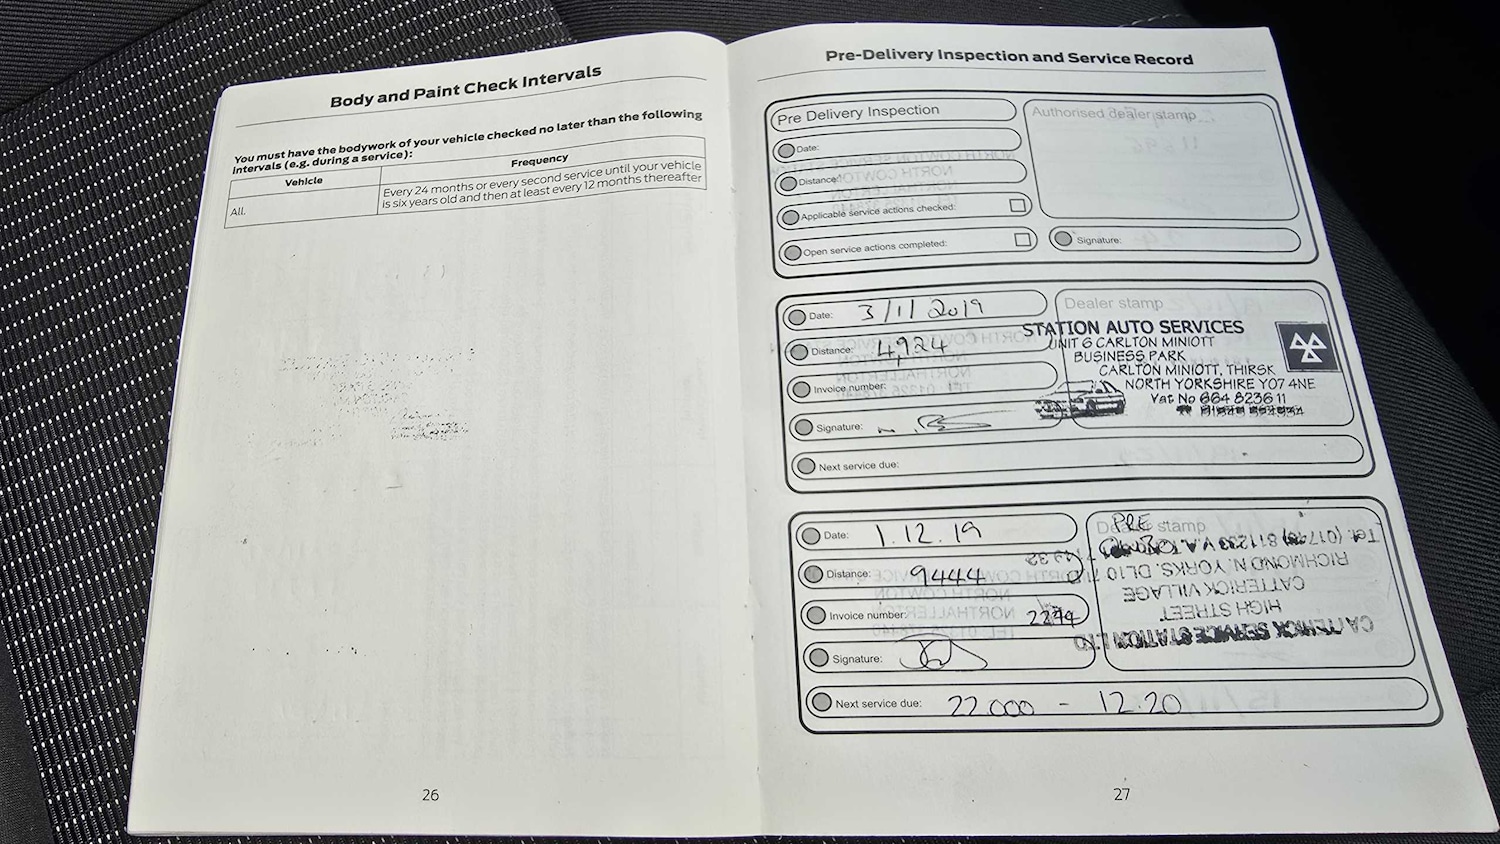 Body and Paint Check Intervals
You must have the bodywork of your vehicle checked no later than the following
intervals (e.g. during a service):
Vehicle
Frequency
All.
Every 24 months or every second service until your vehicle
is six years old and then at least every 12 months thereafter
26
Pre-Delivery Inspection and Service Record
Pre Delivery Inspection
Authorised dealer stamp
Date:
Distance:
Applicable service actions checked:
Open service actions completed:
Signature:
Date: 3/11/2019
Dealer stamp
Distance: 4,924
Invoice number:
Signature:
Next service due:
STATION AUTO SERVICES
UNIT 6 CARLTON MINIOTT
BUSINESS PARK
CARLTON MINIOTT, THIRSK
NORTH YORKSHIRE YO7 4NE
Vat No 664 8236 11
Date: 1.12.19
Dealer stamp
PRE
Distance: 9444
Invoice number:
Signature:
Next service due: 22000 - 12.20
CATTERICK SERVICE STATION LTD
HIGH STREET
CATTERICK VILLAGE
RICHMOND N. YORKS. DL10
27